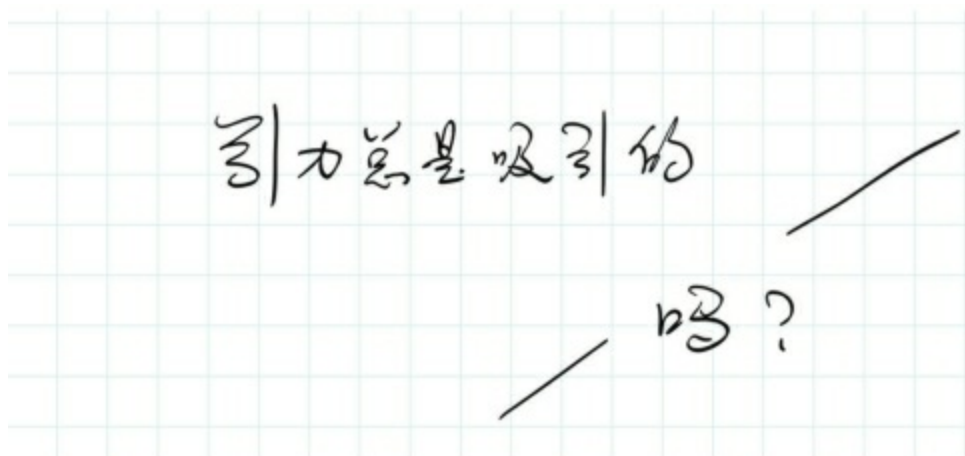 引力总是吸引的
吗？